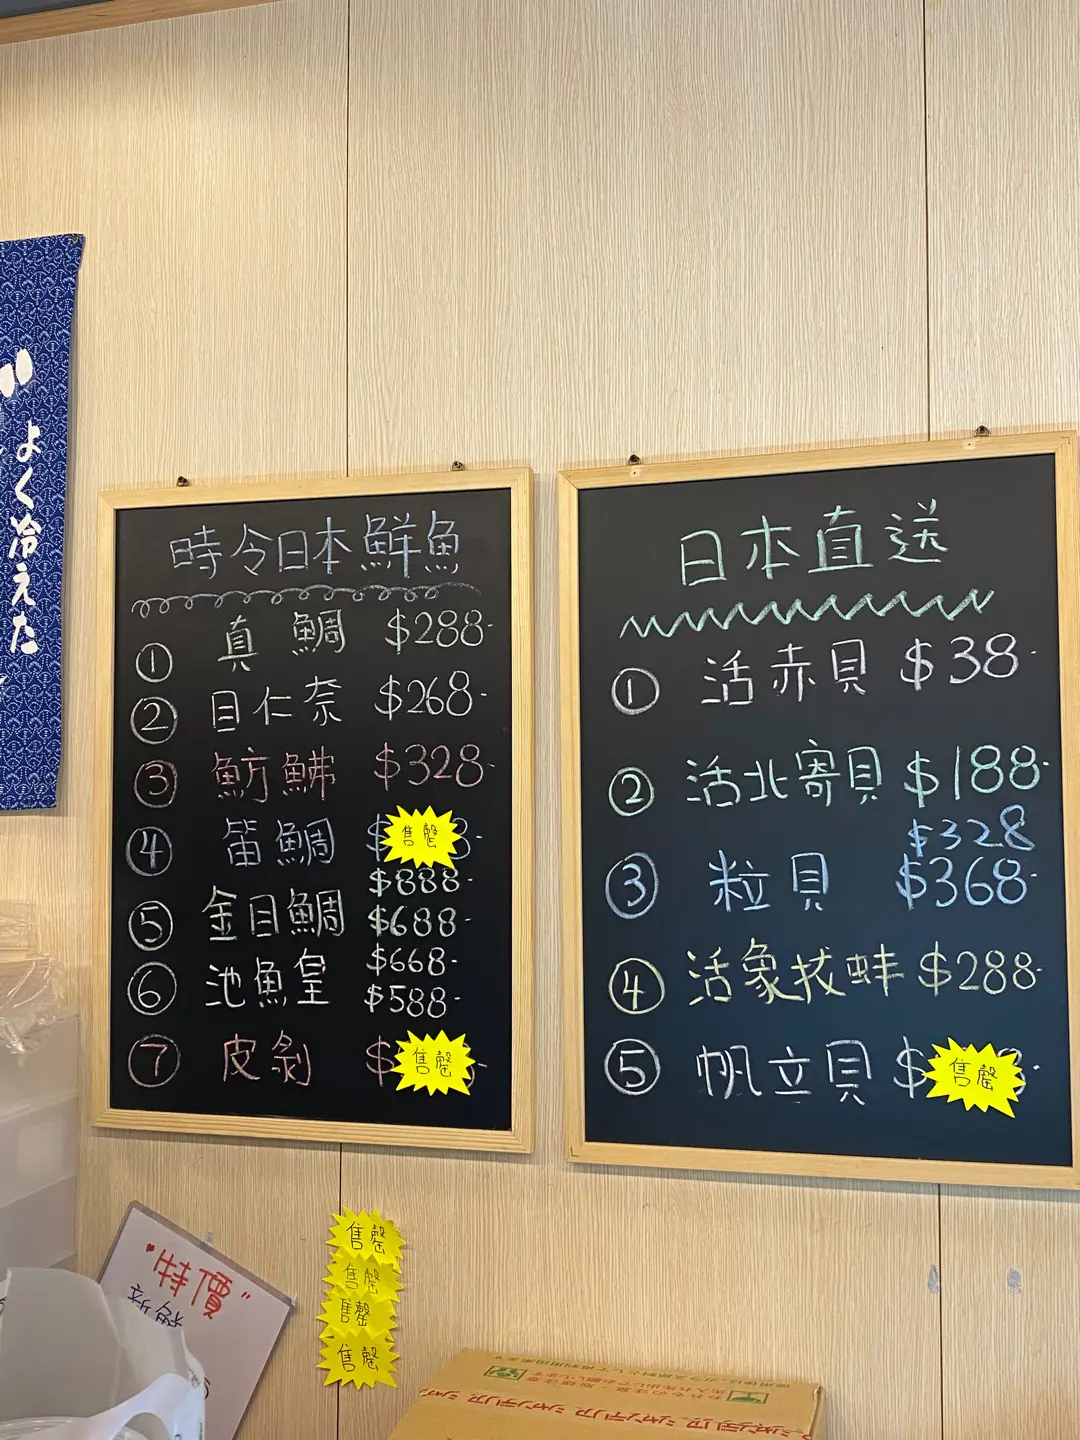 よく冷えた
時令日本鮮魚
① 真鯛 $288-
② 目仁奈 $268-
③ 魴鮄 $328-
④ 笛鯛 $ 售罄 8-
$888-
⑤ 金目鯛 $688-
$668-
⑥ 池魚皇 $588-
⑦ 皮剝 $ 售罄
日本直送
① 活赤貝 $38-
② 活北寄貝 $188-
$328
③ 粒貝 $368-
④ 活象拔蚌 $288-
⑤ 帆立貝 $ 售罄
售罄
售罄
售罄
售罄
"特價"
シャンデリア シャンデリア シャンデリア